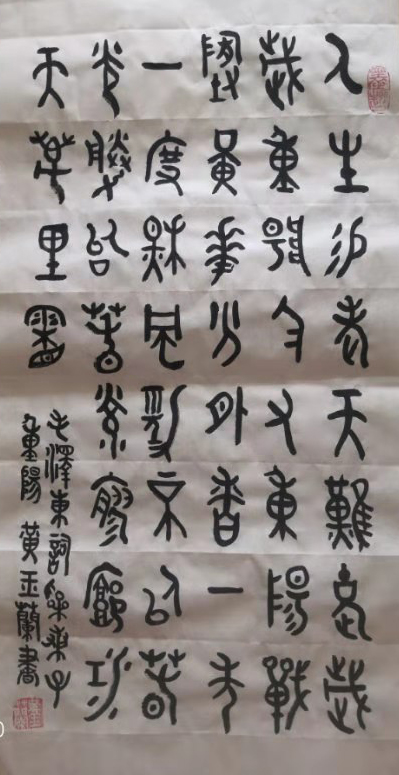 人生易老天難老歲
歲重陽今又重陽戰
地黃花分外香一年
一度秋風勁不似春
光勝似春光寥廓江
天萬里霜
毛澤東詞采桑子
重陽 黃玉蘭書